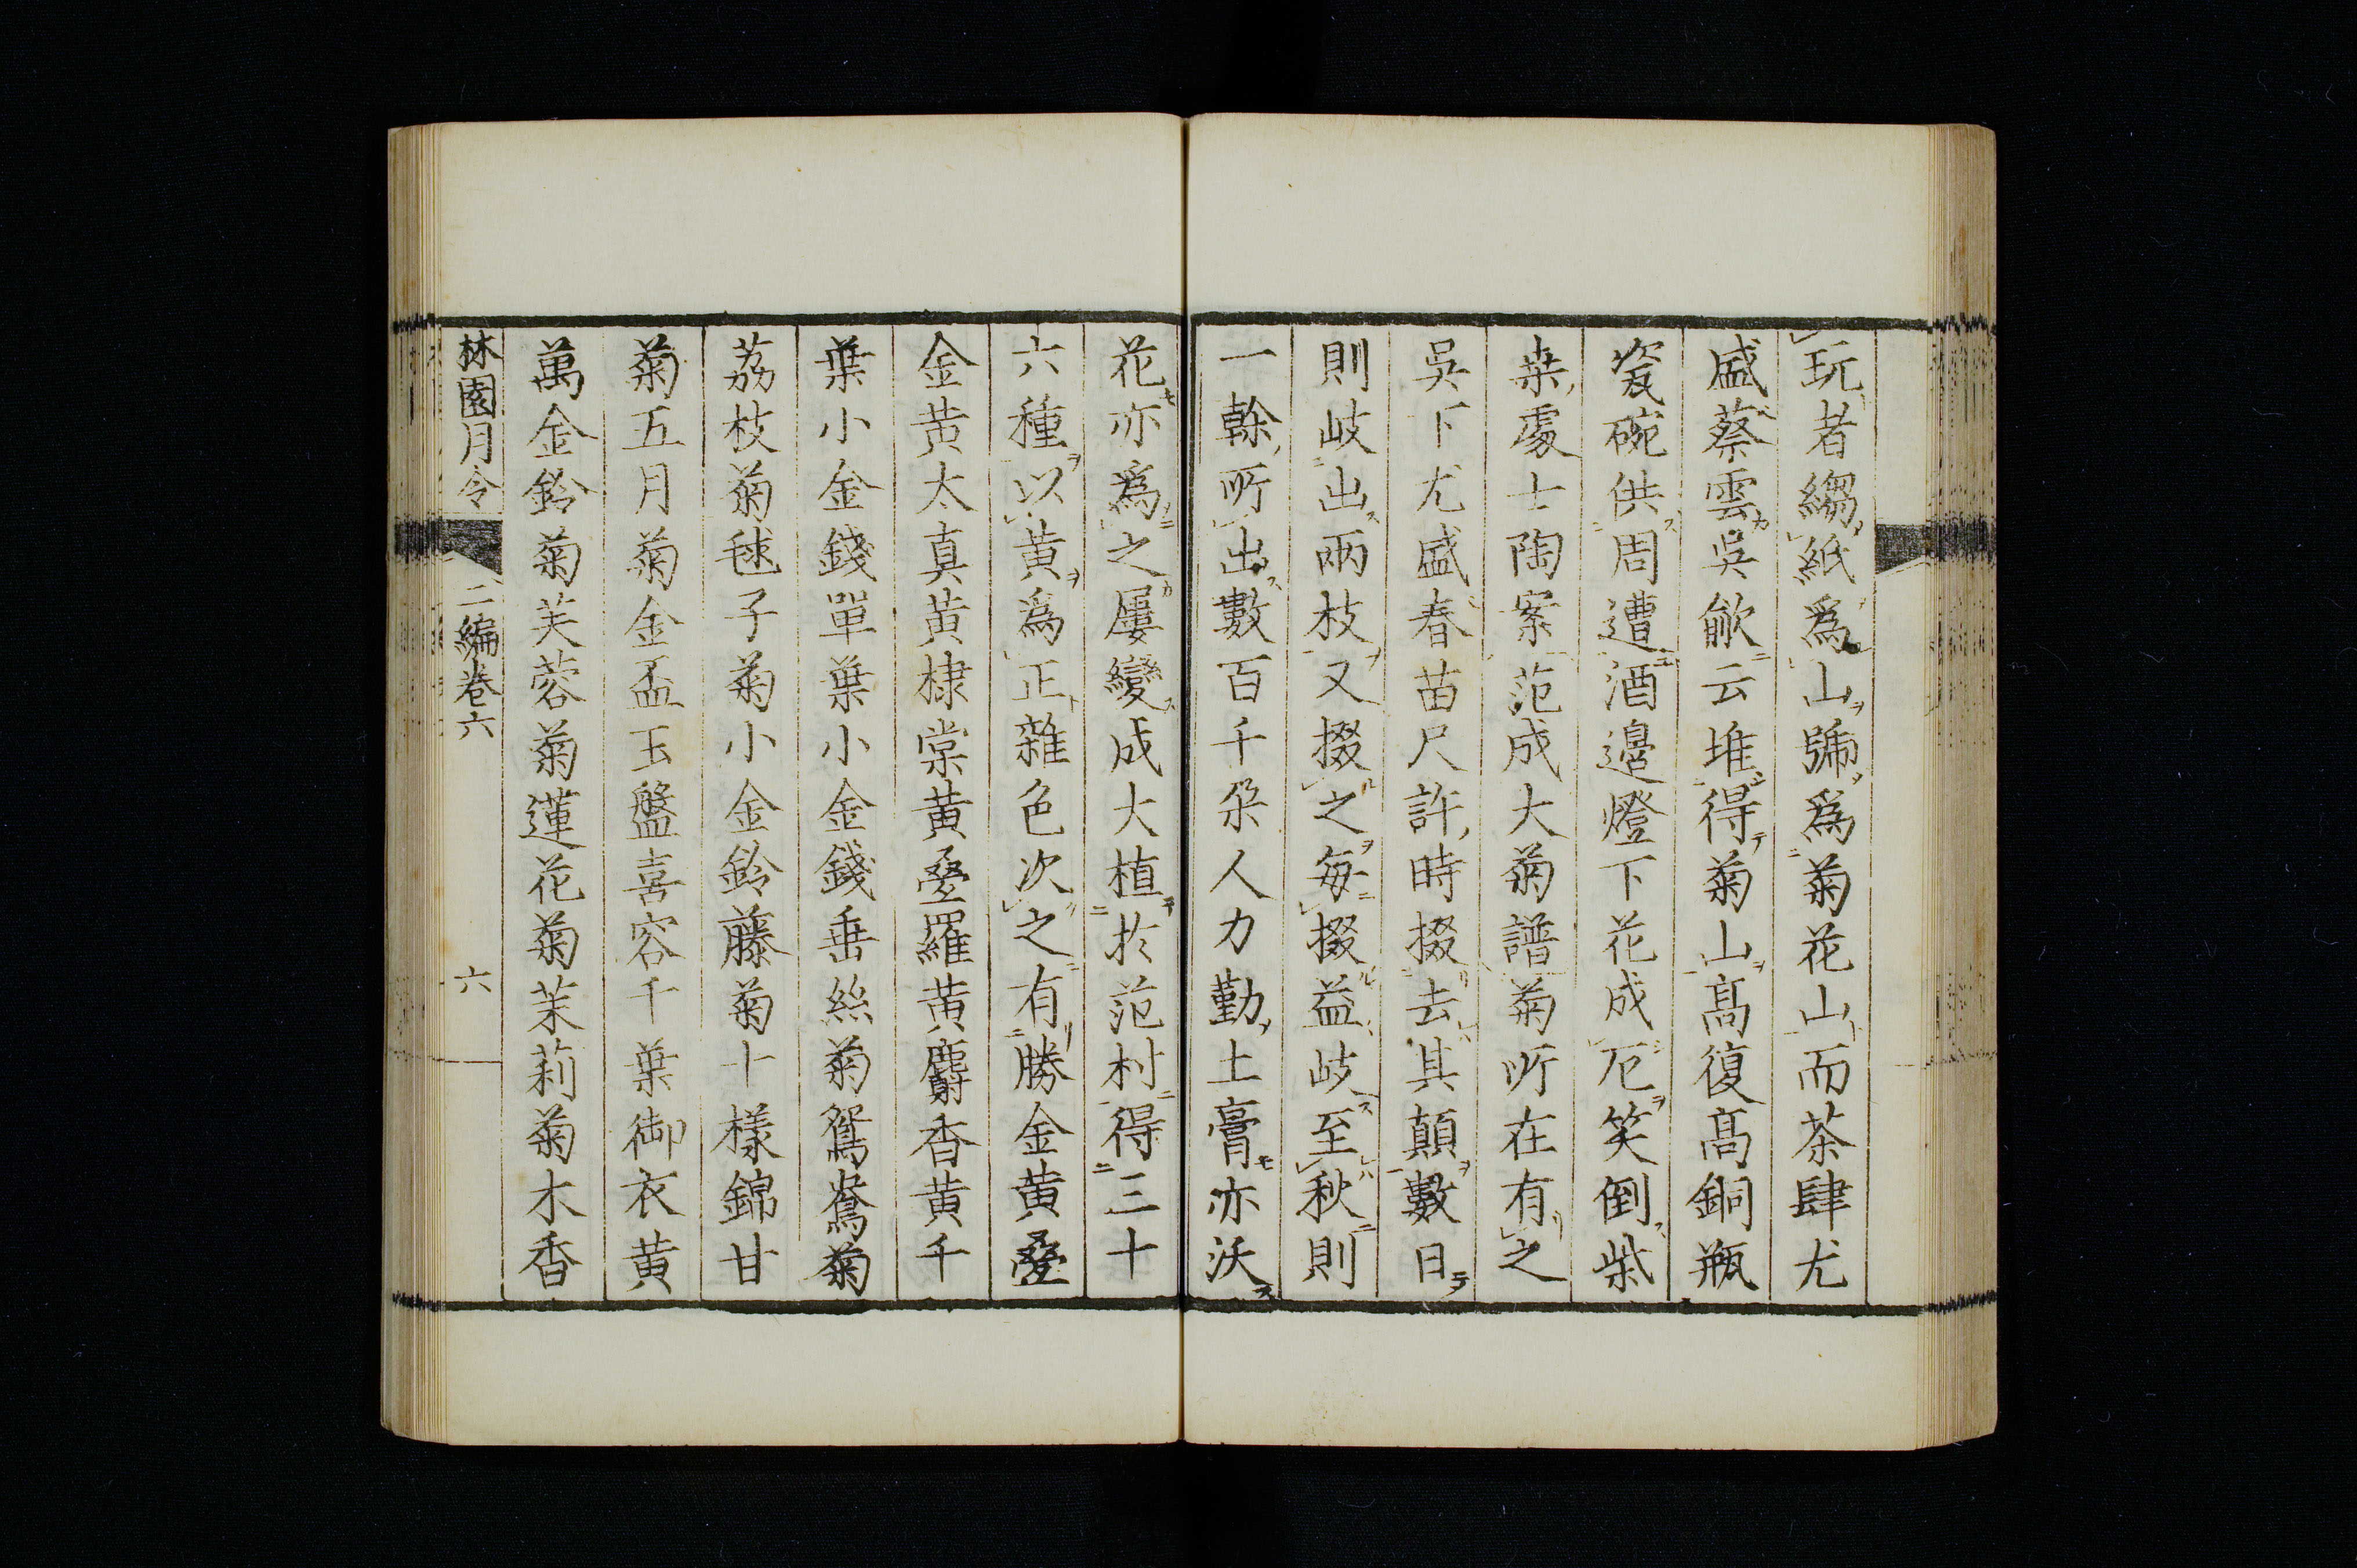 玩者縐紙爲山號爲菊花山而茶肆尤
盛蔡雲吳歈云堆得菊山高復高銅瓶
瓷碗供周遭酒邊燈下花成厄笑倒柴
桒處士陶案范成大菊譜菊所在有之
吳下尤盛春苗尺許時掇去其顛數日
則岐出兩枝又掇之每掇益岐至秋則
一榦所出數百千朶人力勤土膏亦沃
花亦爲之屢變成大植於范村得三十
六種以黄爲正雜色次之有勝金黄疊
金黄太真黄棣棠黄疊羅黄麝香黄千
葉小金錢單葉小金錢垂絲菊鴛鴦菊
荔枝菊毬子菊小金鈴藤菊十樣錦甘
菊五月菊金盃玉盤喜容千葉御衣黄
萬金鈴菊芙蓉菊蓮花菊茉莉菊木香
林園月令 二編卷六 六